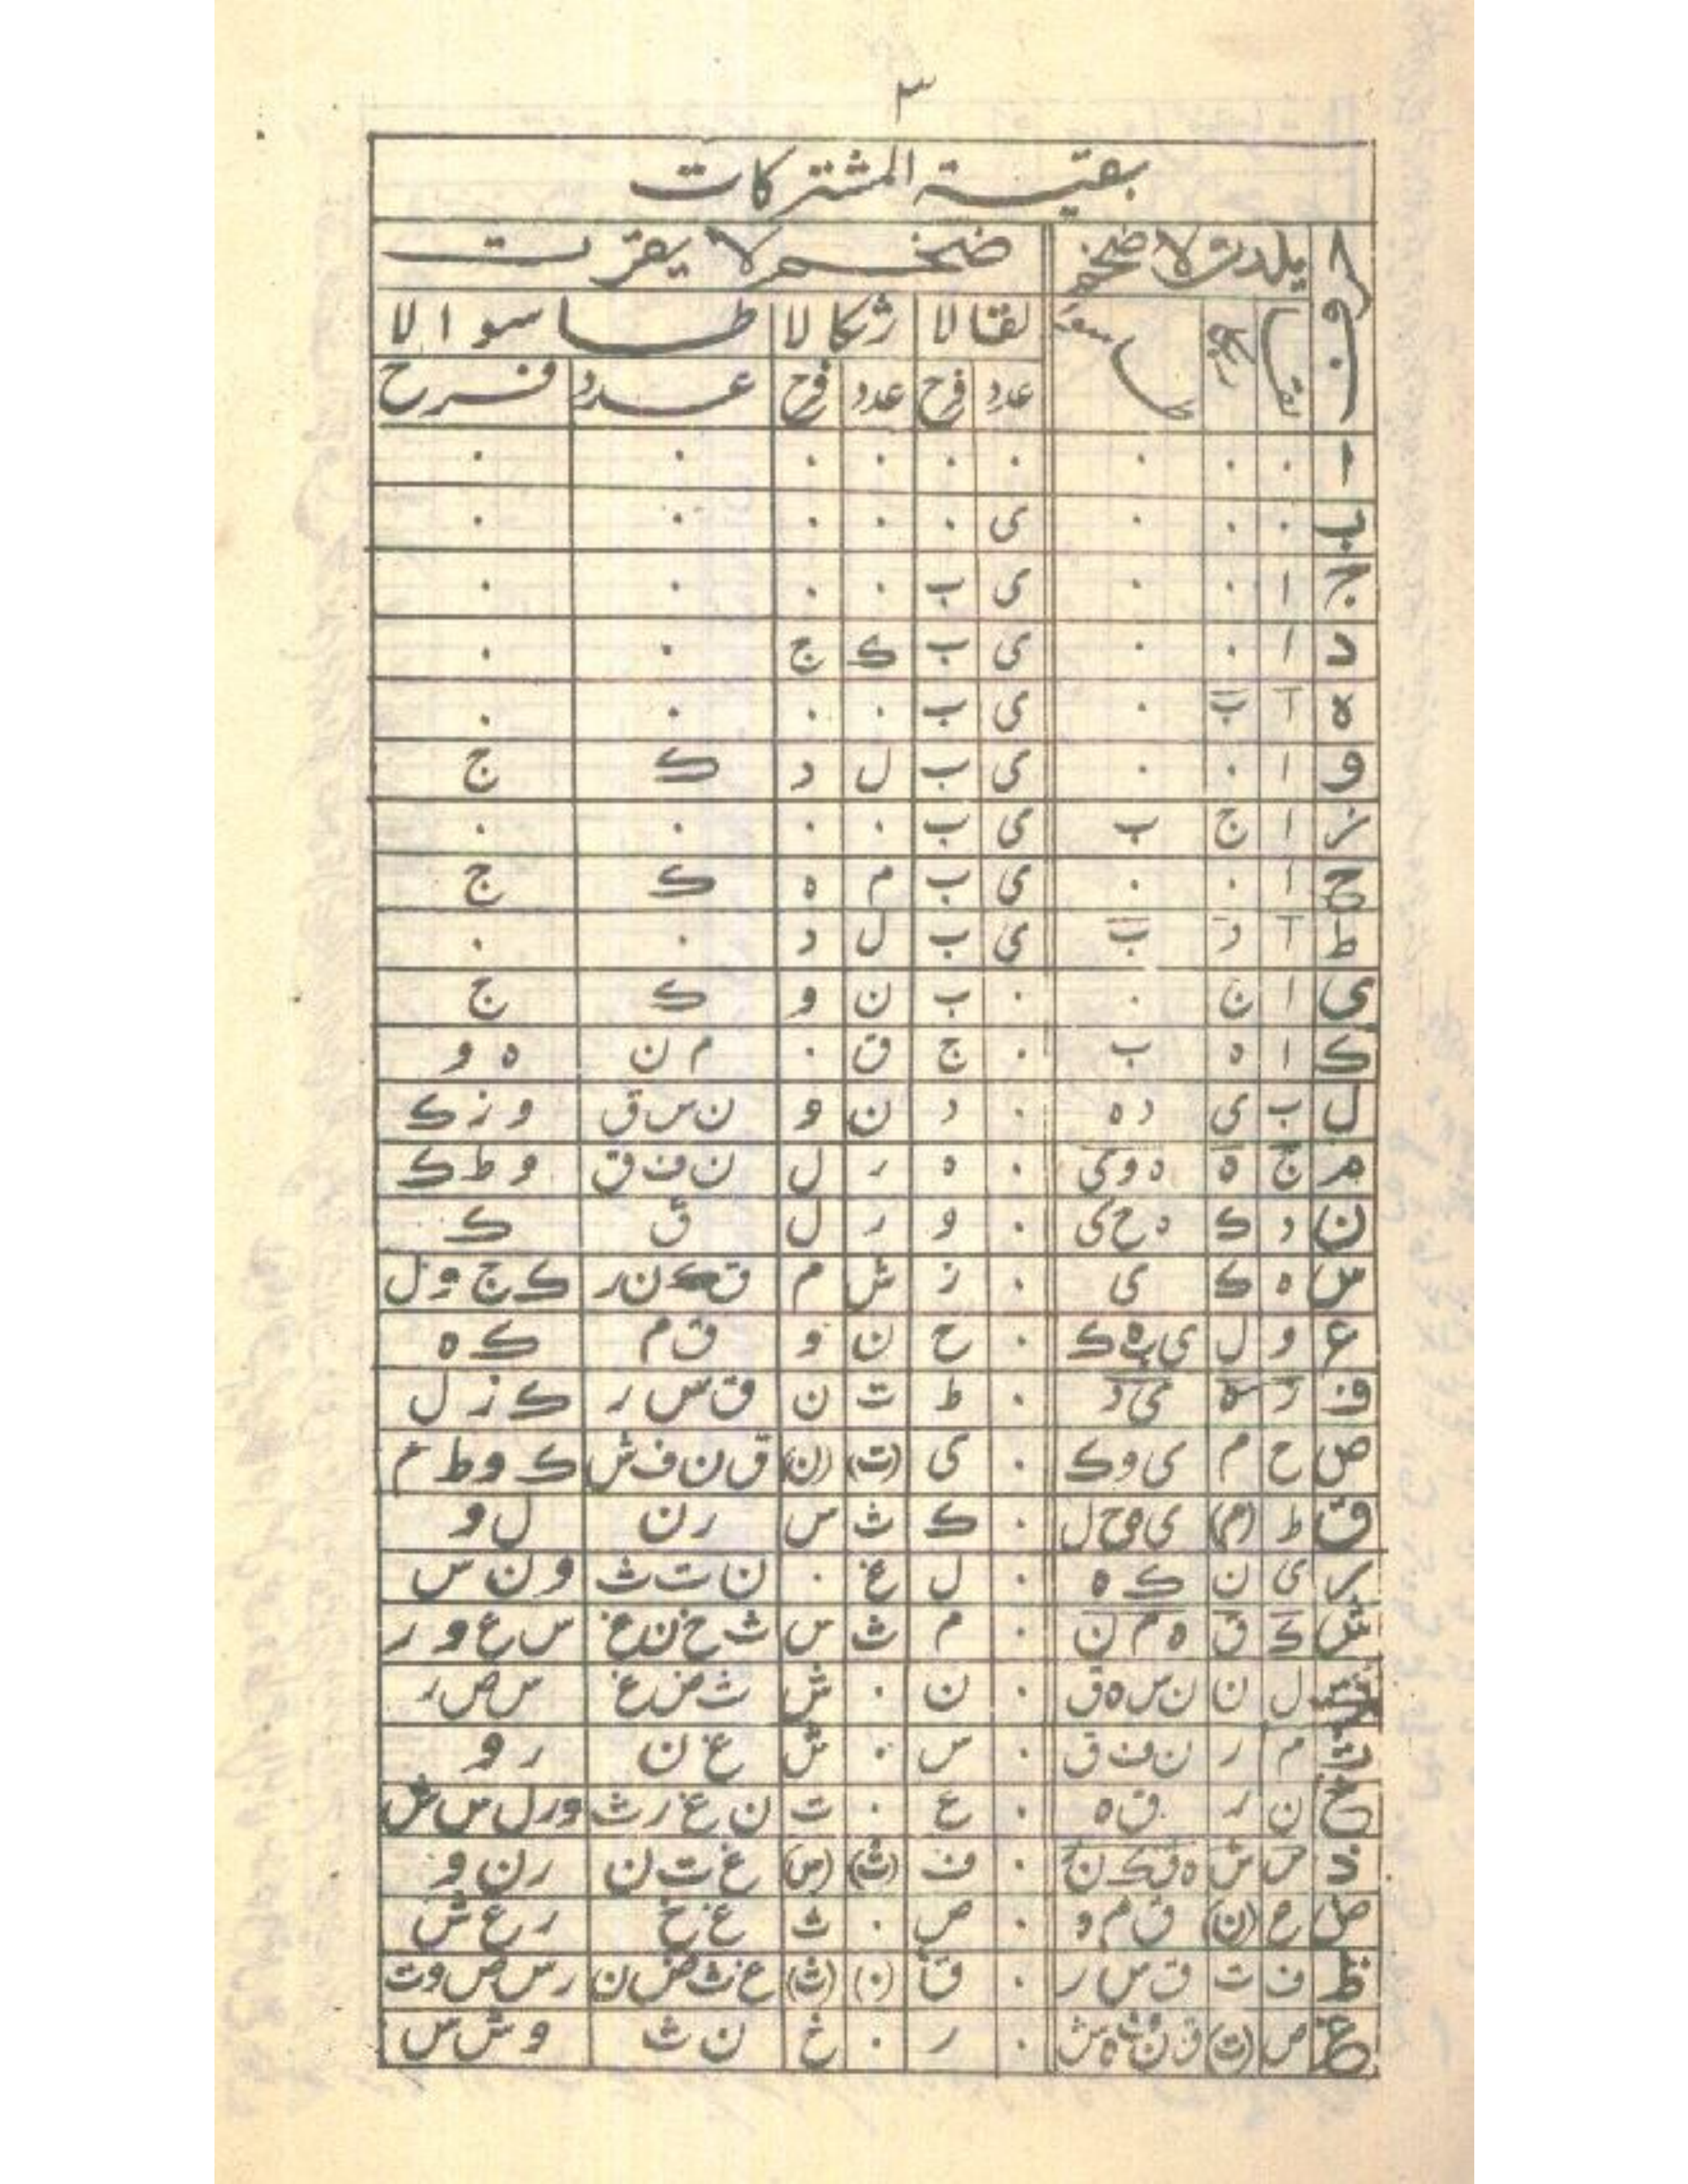 ٣
بقية المشتركات
يلدش لا ضخم ضخم لا يقرت
لقا لا ژكا لا طاسوا لا
عدد فرح عدد فرح عدد فرح
ا . . . . . . . . .
ب . . . ى . . . . .
ج ا . . ى ب . . . .
د ا . . ى ب ك ج . .
ه آ ب . ى ب . . . .
و ا . . ى ب ل د ك ج
ز ا ج ب ى ب . . . .
ح ا . . ى ب م ه ك ج
ط آ د ب ى ب ل د . .
ى ا ن . . ب ن و ك ج
ك ا ه ب . ج ق . م ن ه و
ل ب ى د ه . د ن و ن س ق و ز ك
م ج ه ه و ى . ه ر ل ن ف ق و ط ك
ن د ك ه ح ى . و ر ل ق ك
س ه ك ى . ز ش م ق ك ن ر ك ج و ل
ع و ل ى ه ك . ح ن و ق م ك ه
ف ز ه ى د . ط ت ن ق س ر ك ز ل
ص ح م ى و ك . ى (ت) (ن) ق ن ف ش ك و ط م
ق ط (م) ى و ح ل . ك ث س ر ن ل و
ر ى ن ك ه . ل غ . ن ت ث و ن س
ش ك ق ه م ن . م ث س ث خ ن غ س ع و ر
ل ن ن س ه ق . ن . ش ث ض غ س ص ر
م ر ن ف ق . س . ش غ ن ر و
خ ن ر ق ه . ع . ت ن غ ر ث و ر ل س ش
ذ س ش ه ق ك ن . ف (ث) (س) غ ت ن ر ن و
ض ع (ن) ق م و . ص . ث غ خ ر ع ش
ظ ف ت ق س ر . ق (.) (ث) غ ث ض ن ر س ص و ت
غ ص (ت) . ر . خ ن ث و ش س